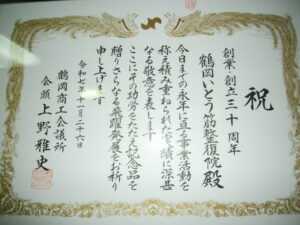 祝
創業・創立三十周年
鶴岡いとう筋整復院殿
今日までの永年に亘る事業活動を
称え積み重ねられた実績に深甚
なる敬意を表します
ここにその功労をたたえ記念品を
贈りさらなる飛躍発展をお祈り
申し上げます
令和七年十一月二十六日
鶴岡商工会議所
会頭 上野雅史